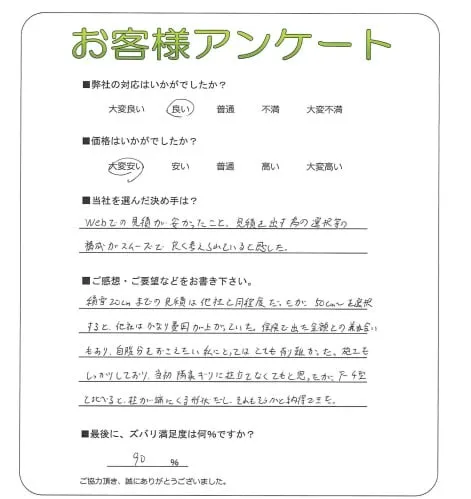 お客様アンケート
■弊社の対応はいかがでしたか？
大変良い 良い 普通 不満 大変不満
■価格はいかがでしたか？
大変安い 安い 普通 高い 大変高い
■当社を選んだ決め手は？
Webでの見積が安かったこと、見積を出す為の選択等の
構成がスムーズで良く考えられていると感じた。
■ご感想・ご要望などをお書き下さい。
積雪20cmまでの見積は他社と同程度だったが、50cm〜を選択
すると、他社はかなり金額が上がっていた。保険で出た金額との兼ね合い
もあり、自腹分をおさえたい私にとってはとても有難かった。施工も
しっかりしており、当初隣家ギリに柱立てなくてもと思ったが、
と、柱が端にくる形状だし、それもそうかと納得できた。
■最後に、ズバリ満足度は何％ですか？
90 ％
ご協力頂き、誠にありがとうございました。